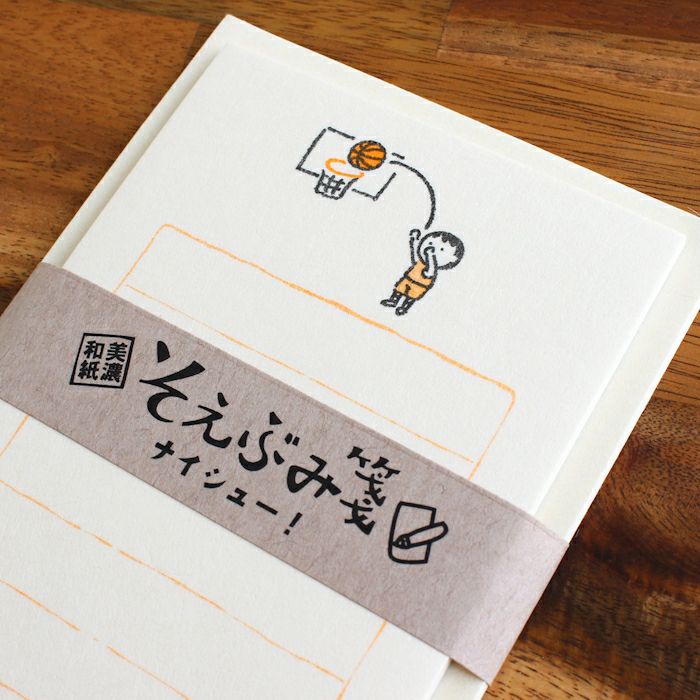 美濃
和紙
そえぶみ箋
ナイシュー!